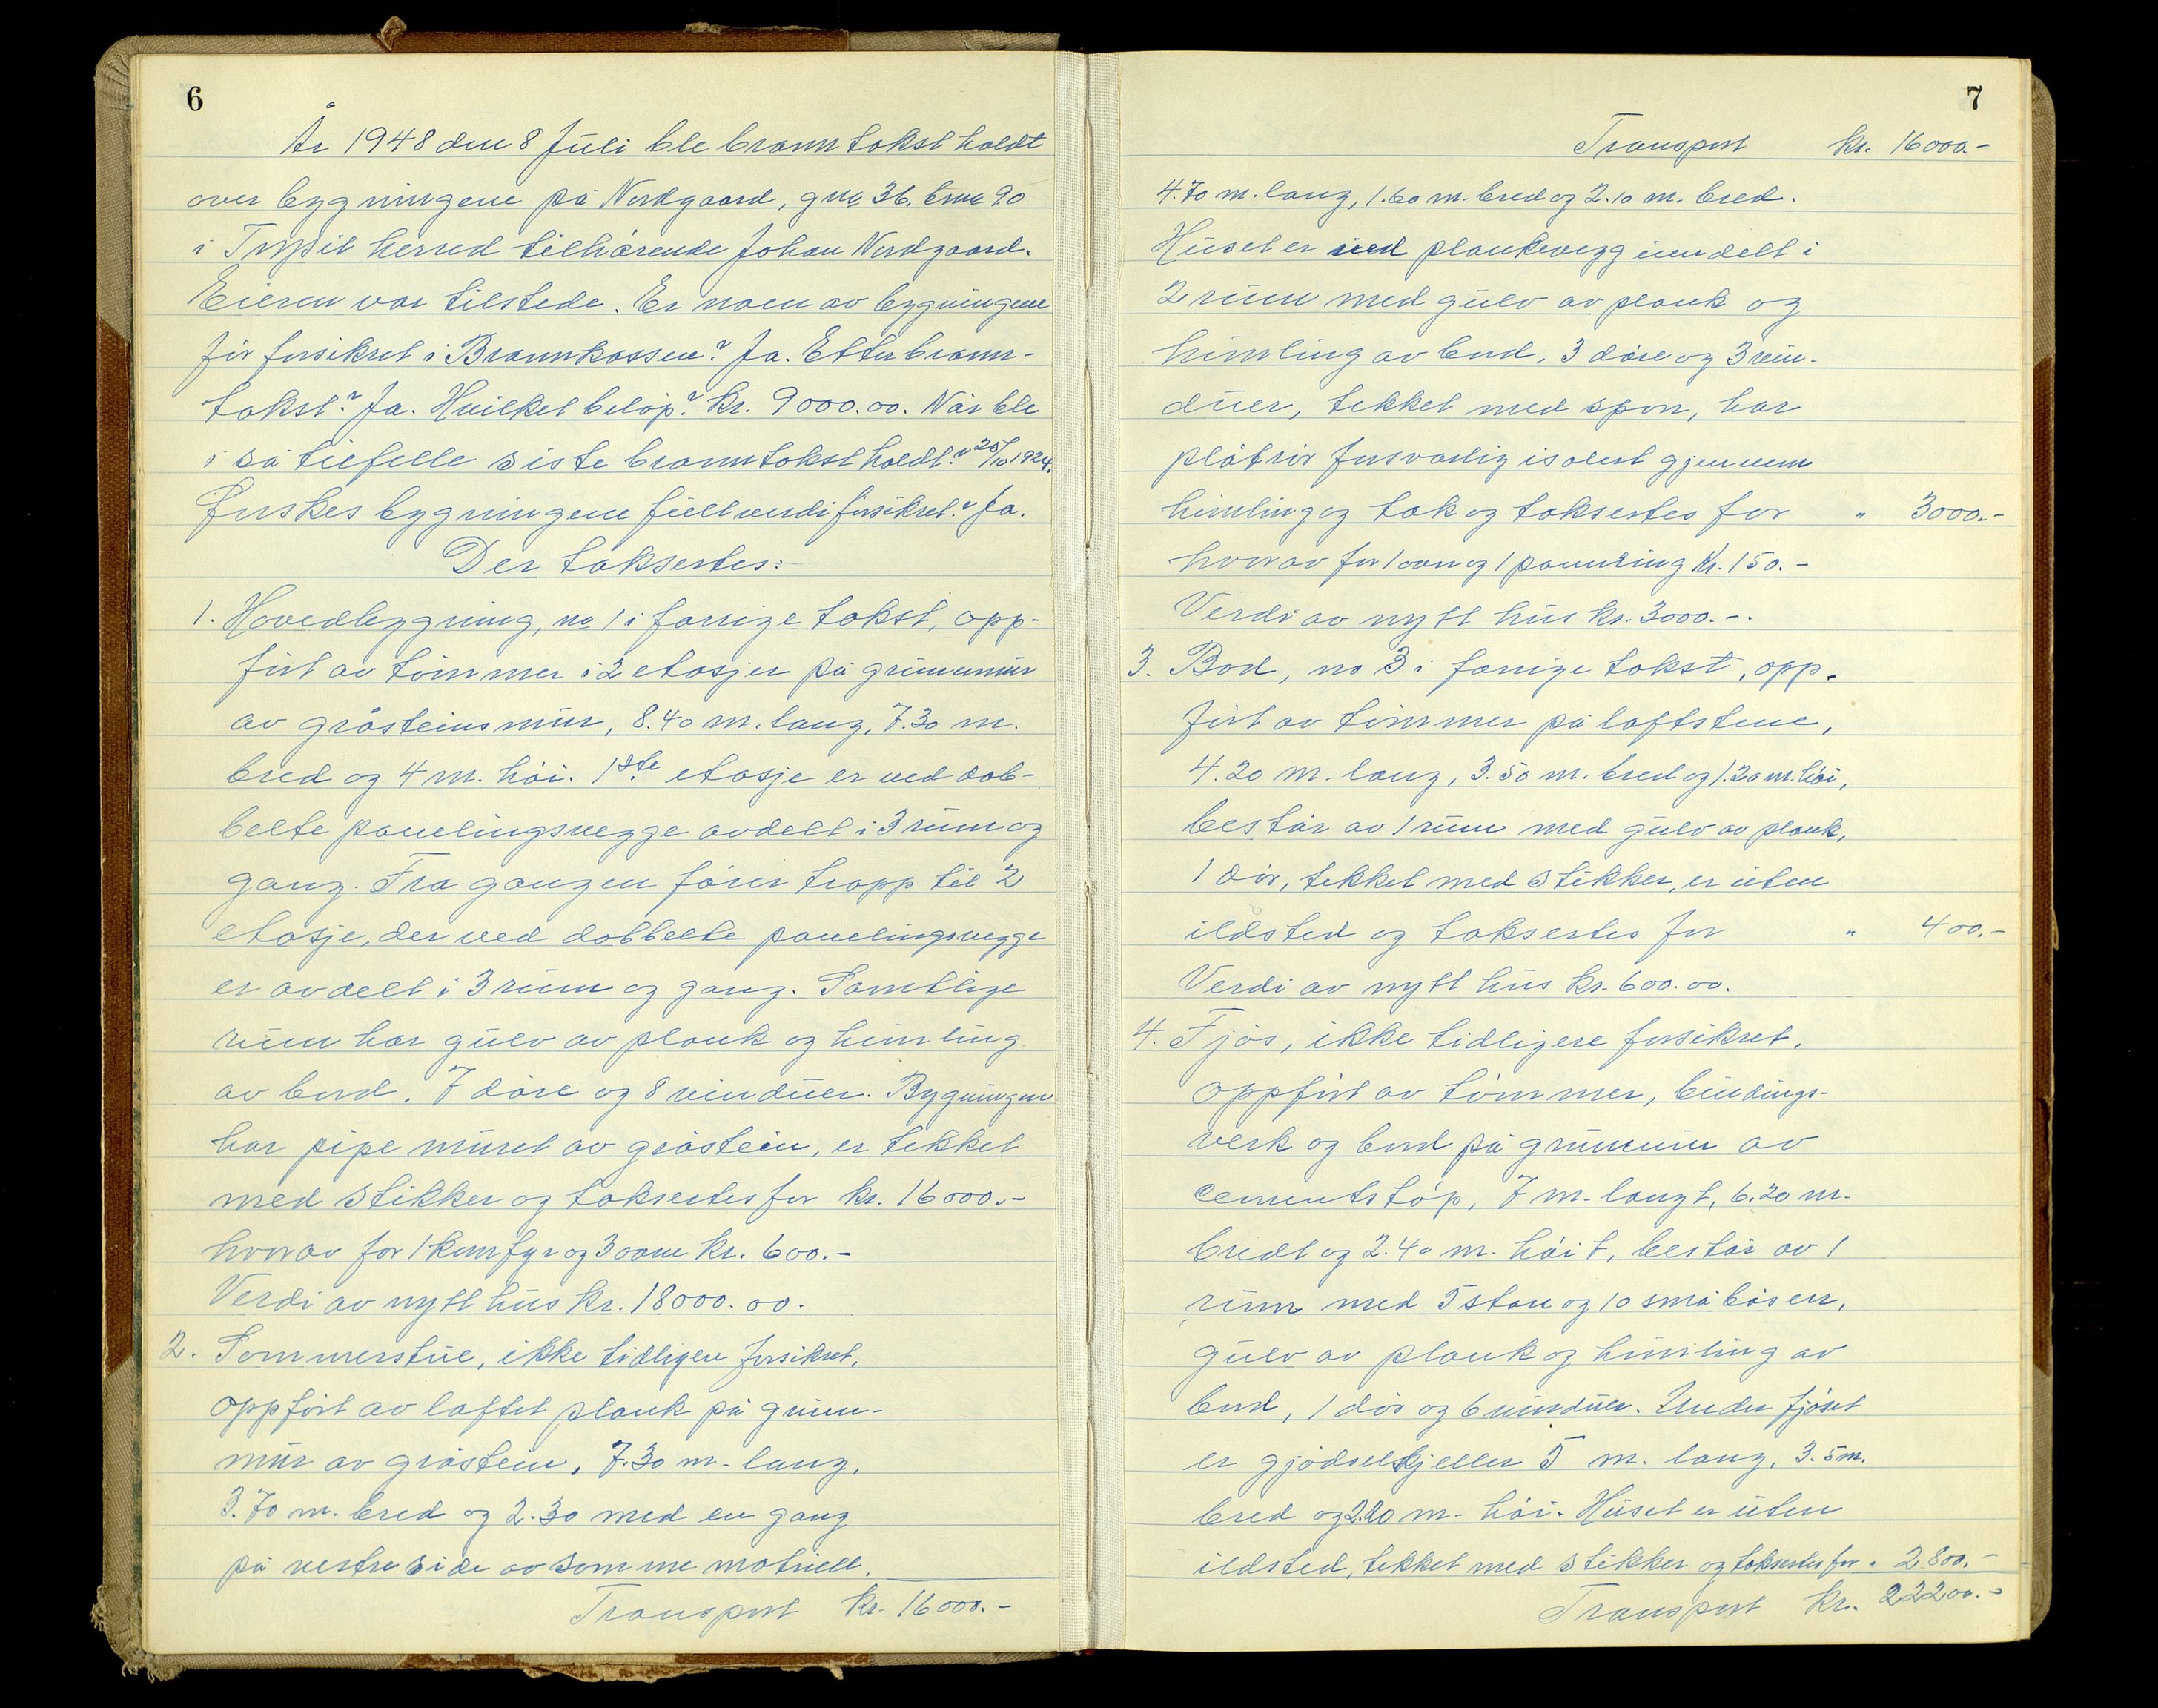 6
År 1948 den 8 Juli ble branntakst holdt
over bygningene på Nordgaard, gno 36, bno 90
i Trysil herred tilhörende Johan Nordgaard.
Eieren var tilstede. Er noen av bygningene
för forsikret i Brannkassen? Ja. Etter brann-
takst? Ja. Hvilket belöp? kr. 9000.00. Når ble
i så tilfelle siste branntakst holdt? 25/10 1924.
Önskes bygningene fullverdiforsikret? Ja.
Der taksertes:
1. Hovedbygning, no 1 i forrige takst, opp-
fört av tömmer i 2 etasjer på grunnmur
av gråsteinsmur, 8.40 m. lang, 7.30 m.
bred og 4 m. höi. 1ste etasje er ved dob-
belte panelingsvegge avdelt i 3 rum og
gang. Fra gangen förer trapp til 2
etasje, der ved dobbelte panelingsvegge
er avdelt i 3 rum og gang. Samtlige
rum har gulv av plank og himling
av bord. 7 döre og 8 vinduer. Bygningen
har pipe muret av gråstein, er tekket
med stikker og taksertes for kr. 16000.-
hvorav for 1 komfyr og 3 ovne kr. 600.-
Verdi av nytt hus kr. 18000.00.
2. Sommerstue, ikke tidligere forsikret,
oppfört av laftet plank på grunn-
mur av gråstein, 7.30 m. lang,
3.70 m. bred og 2.30 med en gang
på vestre side av samme matriell.
Transport kr. 16000.-
7
Transport kr. 16000.-
4.70 m. lang, 1.60 m. bred og 2.10 m. bred.
Huset er ved plankevegg inndelt i
2 rum med gulv av plank og
himling av bord, 3 döre og 3 vin-
duer, tekket med spon, har
plåtrör forsvarlig isolert gjennem
himling og tak og taksertes for " 3000.-
hvorav for 1 ovn og 1 pannering kr. 150.-
Verdi av nytt hus kr. 3000.-.
3. Bod, no 3 i forrige takst, opp-
fört av tömmer på laftstene,
4.20 m. lang, 3.50 m. bred og 1.20 m. höi,
består av 1 rum med gulv av plank,
1 dör, tekket med stikker, er uten
ildsted og taksertes for " 400.-
Verdi av nytt hus kr. 600.00.
4. Fjös, ikke tidligere forsikret,
oppfört av tömmer, bindings-
verk og bord på grunnmur av
cementstöp, 7 m. langt, 6.20 m.
bredt og 2.40 m. höit, består av 1
rum med 5 store og 10 små båser,
gulv av plank og himling av
bord, 1 dör og 6 vinduer. Under fjöset
er gjödselkjeller 5 m. lang, 3.5 m.
bred og 2.20 m. höi. Huset er uten
ildsted, tekket med stikker og taksertes for " 2800.-
Transport kr. 22200.-